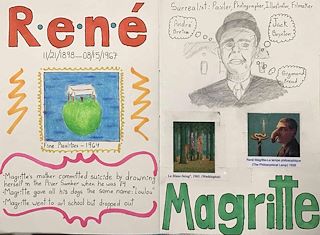 R·e·n·é
11/21/1898—08/15/1967
Fine Realities - 1964
·Magritte's mother committed suicide by drowning
herself in the River Sambre when he was 14
·Magritte gave all his dogs the same name: "Loulou"
·Magritte went to art school but dropped out
Surrealist: Painter, Photographer, Illustrator, Filmmaker
André
Breton
Jack
Raymond
Le Blanc-Seing", 1965, (Washington)
René Magritte-La lampe philosophique
(The Philosophical Lamp) 1936
Magritte